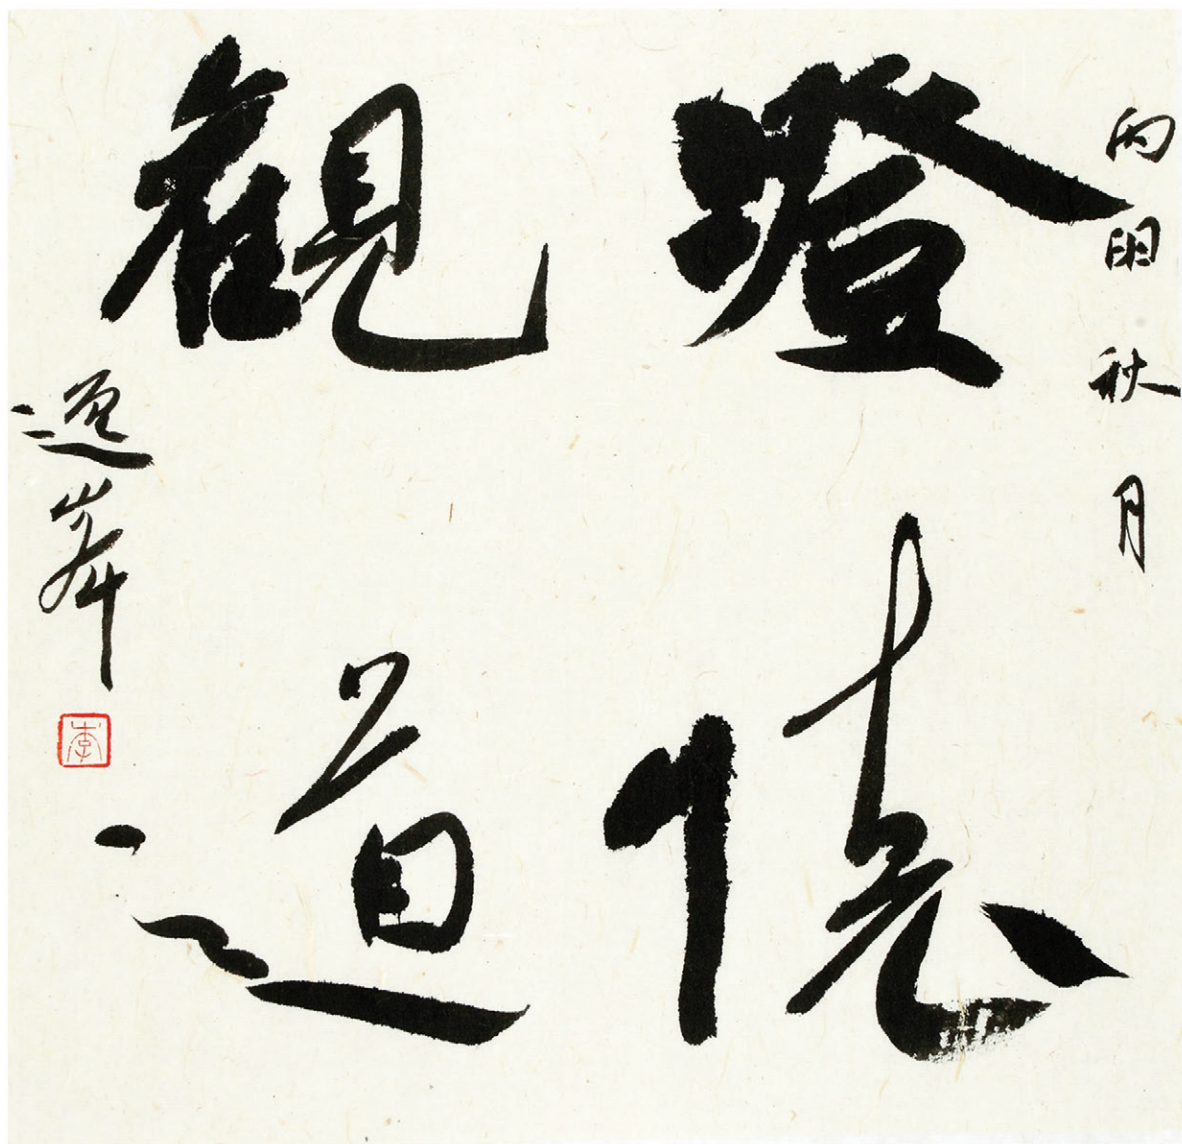 丙申秋月
澄懷
觀道
峯
李